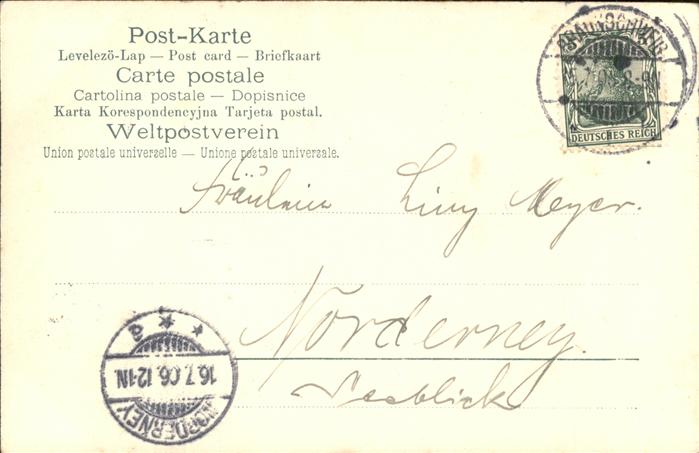 Post-Karte
Levelezö-Lap — Post card — Briefkaart
Carte postale
Cartolina postale — Dopisnice
Karta Korespondencyjna Tarjeta postal.
Weltpostverein
Union postale universelle — Unione postale universale.
BRAUNSCHWEIG
DEUTSCHES REICH
Fräulein Liny Meyer.
Norderney.
Seeblick
16.7.06.12-1N.
NORDERNEY